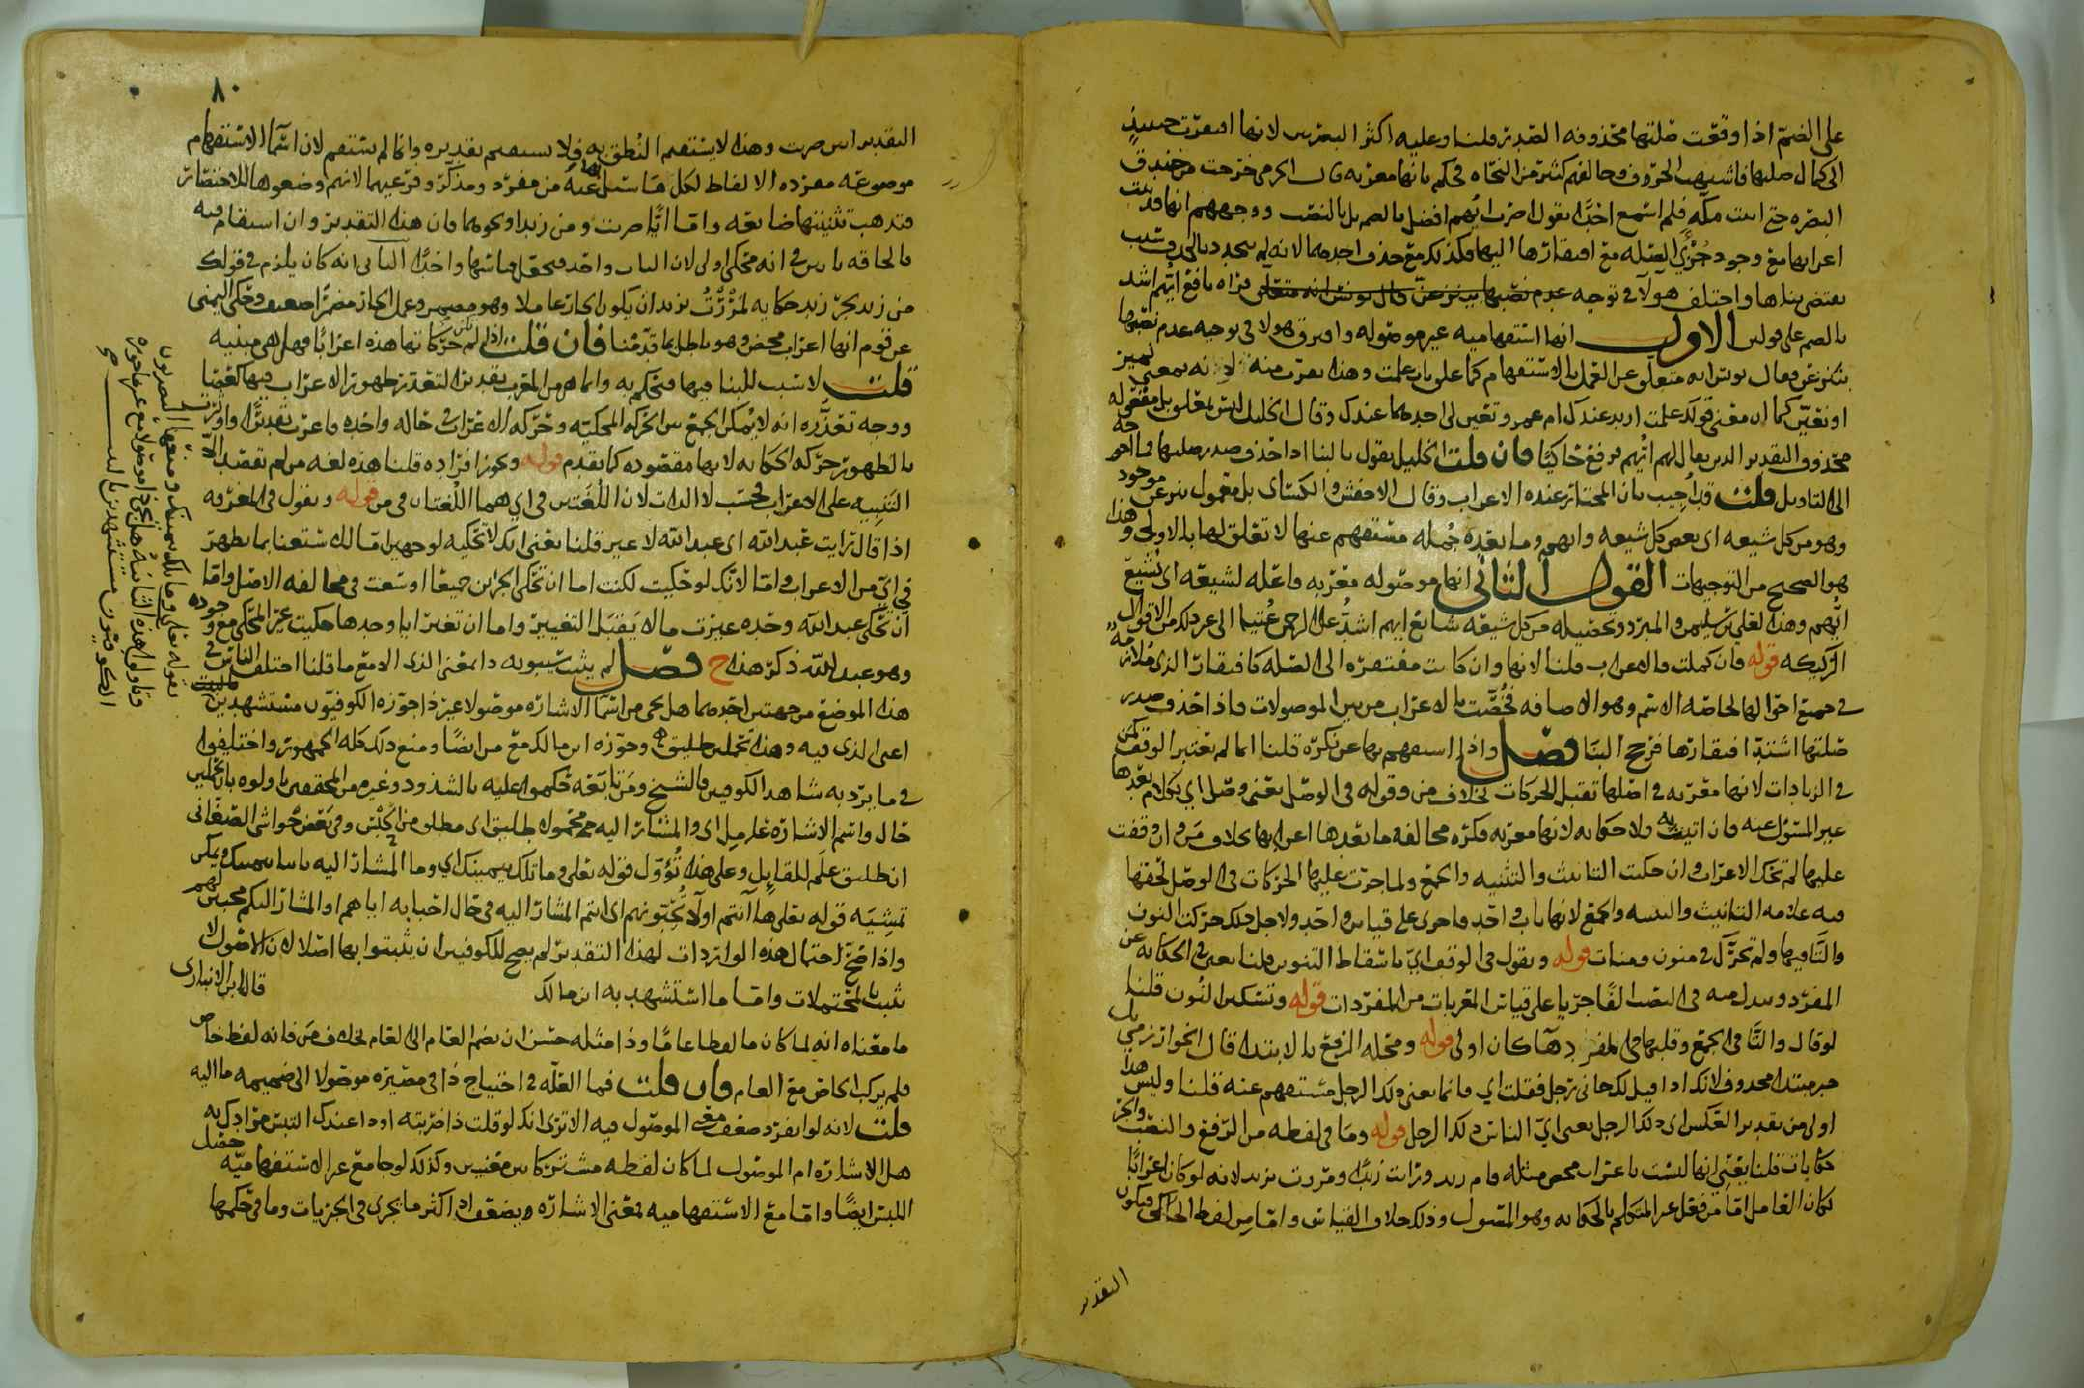 على الضم اذا وقعت صلتها محذوفه الصدر قلنا وعليه اكثر البصريين لانها افتقرت حينئذ
الى كمال صلتها فاشبهت الحروف وخالفهم كثير من النحاه في كم بانها معربه قال الجرمي خرجت من خندق
البصره حتى اتيت مكه فلم اسمع احدا يقول اضرب ايهم افضل بالضم بل بالنصب ووجههم انها قد ثبت
اعرابها مع وجود جزئي الصله مع افتقارها اليها فكذلك مع حذف احدهما لانه لم يتجدد بالحذف سبب
يقتضي بناها واختلف هولا في توجيه عدم نصبها قراه نافع ايهم اشد
بالضم على قولين الاول انها استفهاميه غير موصوله وافترق هولا في توجيه عدم نصبها
بننزعن فقال يونس انه متعلق عن العمل بالاستفهام كما علق باب علمت وهذا يقرب منه لانه بمعنى تميز
او نعين كما ان معنى قولك علمت ازيد عندك ام عمرو تعين لي احدهما عندك وقال الخليل ليس بتعليق بل مفعوله
محذوف والتقدير الذين يقال لهم ايهم فرفع حاكيا فان قلت الخليل يقول بالبنا اذا حذف صدر صلتها فما احوجه
الى التاويل قلت قد اجيب بان المختار عنده الاعراب وقال الاخفش والكسائي بل مفعول ننزعن موجود
وهو من كل شيعه اي بعض كل شيعه وايهم وما بعده جمله مستفهم عنها لا تعلق لها بالاولى وهذا
هو الصحيح من التوجيهات القول الثاني انها موصوله معربه فاعله لشيعه اي تشيع
ايهم وهذا لعلي بن سليمن والمبرد وتحصيله من كل شيعه شايع ايهم اشد على الرحمن عتيا الى غير ذلك من الاقوال
الركيكه قوله فان كملت فالاعراب قلنا لانها وان كانت مفتقره الى الصله كافتقار الذي ملازمه
في جميع احوالها لخاصه الاسم وهو الاضافه فخصت بالاعراب من بين الموصولات فاذا حذف صدر
صلتها اشتد افتقارها فرجح البنا فصل واذا استفهم بها عن نكره قلنا انما لم يعتبر الوقف لكن
في الزيادات لانها معربه في اصلها تقبل الحركات بخلاف من وقوله في الوصل يعني وصل اي بكلام بعدها
غير المسؤل عنه فان اتيت به فلا حكايه لانها معربه فكره مخالفه ما بعدها اعرابها بخلاف من وان وقفت
عليها لم تحك الاعراب وان حكيت التانيث والتثنيه والجمع ولما جرت عليها الحركات في الوصل لحقتها
فيه علامه التانيث والتثنيه والجمع لانها باب واحد فاجري على قياس واحد ولاجل ذلك حركت النون
والتا فيها ولم تحرك في منون ومنات قوله ويقول في الوقف اي باسقاط التنوين قلنا يعني في الحكايه عن
المفرد ويبدل منه في النصب الفا جريا على قياس المعربات من المفردات قوله وتسكين النون قلنا بل
لو قال والتا في الجمع وقلبها في المفرد ها كان اولى قوله ومحله الرفع بالابتدا قال الخوارزمي
خبر مبتدا محذوف لانك اذا قيل لك جاني رجل فقلت اي فانما يعني ذلك الرجل مستفهم عنه قلنا وليس هذا
اولى من تقدير العكس اي ذلك الرجل بمعنى اي الناس ذلك الرجل قوله وما في لفظه من الرفع والنصب والجر
حكايات قلنا يعني انها ليست باعراب محض مثله قام زيد ورايت زيدا ومررت بزيد لانه لو كان اعرابا
لكان العامل اما من فعل غير المتكلم بالحكايه وهو المقول وذلك خلاف القياس واما من لفظ الحاكي فيكون
التقدير
٨٠
التقدير اين ضربت وهذا لا يستقيم النطق به فلا يستقيم تقديره وانما لم يستقم لان اسما الاستفهام
موضوعه مفرده الالفاظ لكل ما سئل بها عنه من مفرد ومذكر وفرعيهما لانهم وضعوها للاختصار
فتذهب تثنيتها ضايعه واما ايا ضربت ومن زيدا ونحوهما فان هذا التقدير وان استقام فيه
فالحاقه باس في انه محكي اولى لان الباب واحد فيجعل قياسها واحدا الثاني انه كان يلزم في قولك
من زيد بجر زيد حكايه لمررت بزيد ان يكون الجار عاملا وهو مضمر وعمل الجار مضمرا ضعيف وحكى اليمني
عن قوم انها اعراب محض وهو باطل بما قدمنا فان قلت اذا لم تكن حركاتها هذه اعرابا فهل هي مبنيه
قلت لا سبب للبنا فيها فنحكم به وانما هي من المعرب تقديرا لتعذر ظهور الاعراب فيها لفظيا
ووجه تعذره انه لا يمكن الجمع بين الحركه المحكيه وحركه الاعراب في حاله واحده فاعرب تقديرا واوثرت
بالظهور حركه الحكايه لانها مقصوده كما تقدم قوله ويجوز افراده قلنا هذه لغه من لم يقصد الا
التنبيه على الاعراب فحسب لا الذات لان اللغتين في اي هما اللغتان في من قوله ويقول في المعرفه
اذا قال رايت عبد الله اي عبد الله لا غير قلنا يعني انك لا تحكيه لوجهين اما لاستغنا بما يظهر
في اي من الاعراب واما لانك لو حكيت لكنت اما ان تحكي الجزاين جميعا اوسعت في مخالفه الاصل واما
ان تحكي عبد الله وحده غيرت ما لا يقبل التغيير واما ان تغير ايا وحدها حكيت غير المحكي مع وجوده
وهو عبد الله ذكر هذا ح فصل لم يثبت سيبويه ذا بمعنى الذي الا مع ما قلنا اختلف الناس في
هذا الموضع من جهتين احدهما هل يجي من اسما الاشاره موصولا غير ذا جوزه الكوفيون مستشهدين
اعني الذي فيه وهذا تحملين طليق وجوزه ابن مالك مع من ايضا ومنع ذلك كله الجمهور واختلفوا
في ما يرد به شاهد الكوفيين فالشيخ ومن تابعه حكموا عليه بالشذوذ وغيره من المحققين اولوه بان تحملين
حال واسم الاشاره عامل اي والمشار اليه محمولا طليق اي مطلق من الحبس وفي بعض حواشي الصغاني
ان طليق علم للقايل وعلى هذا تؤول قوله تعلى وما تلك بيمينك اي وما المشار اليه بيمينك ويمكن
تمشيه قوله تعلى ها انتم اولا تحبونهم اي انتم المشار اليه في حال احبابه اياهم او المشار اليكم محبين لهم
واذا صح احتمال هذه الواردات لهذا التقدير لم يصح للكوفيين ان يثبتوا بها اصلا لان الاصول لا
تثبت بالمحتملات واما ما استشهد به ابن مالك قال ابن الانباري
ما معناه انه لما كان ما لفظا عاما وذا مثله حسن ان يضم العام الى العام بخلاف من فانه لفظ خاص
فلم يركب الخاص مع العام فان قلت فما العله في احتياج ذا في مصيره موصولا الى ضميمه ما اليه
قلت لانه لو انفرد ضعف معنى الموصول فيه الا ترى انك لو قلت ذا ضربته او ذا عندك التبس مرادك به
هل الاشاره ام الموصول لما كان لفظه مشتركا بين معنيين وكذلك لو جامع غير الاستفهاميه حصل
اللبس ايضا واما مع الاستفهاميه فمعنى الاشاره ويضعف اذ اكثر ما تجري في الجزيات وما في حكمها
بقوله تعلى وما تلك بيمينك ومنعها البصريون
وتاولوا هذه الثانيه هل تجي ذا موصولا مع غير ما جوزه
الكوفيون مستشهدين بالبيت